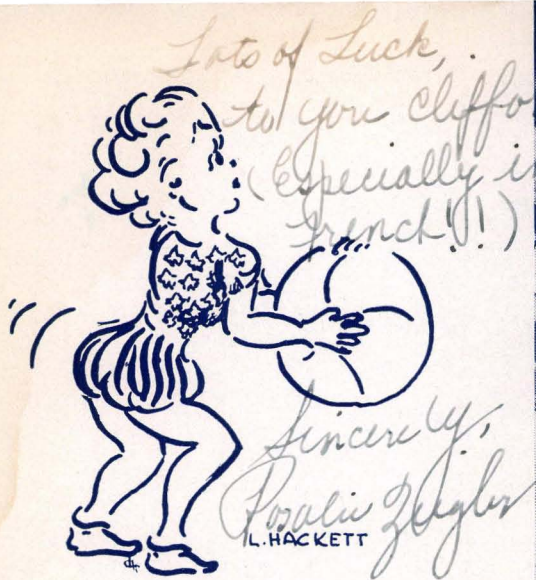 Lots of Luck,
to you Cliffo
(Especially i
French!!)
Sincerely,
Rosalie Zeigler
L. HACKETT